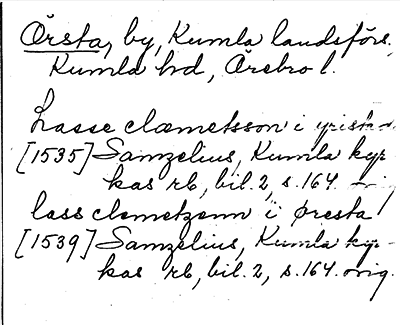 Örsta, by, Kumla landsförs.,
Kumla hd, Örebro l.
Lasse clæmetsson i yrista
[1535] Samzelius, Kumla kyr
kas rb, bil. 2, s. 164. orig
lass clemetzenn i øresta
[1539] Samzelius, Kumla kyr-
kas rb, bil. 2, s. 164. orig.